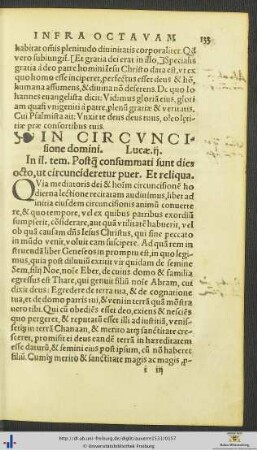 INFRA OCTAVAM 133
habitat oĩnis plenitudo diuinitatis corporaliter. Qđ
vero subiungit. [Et gratia dei erat in illo.] Specialis
gratia a deo patre homini Iesu Christo data est, vt ex
quo homo esse inciperet, perfectus esset deus & hõ,
humana assumens, & diuina nõ deserens. De quo Io
hannes euangelista dicit: Vidimus gloriã eius, glori
am quasi vnigeniti a patre, plenũ gratiæ & veritatis.
Cui Psalmista ait: Vnxit te deus deus tuus, oleo lęti-
tiæ præ consortibus tuis.
IN CIRCVNCI
sione domini. Lucæ.ij.
In il. tem. Postq̃ consummati sunt dies
octo, ut circuncideretur puer. Et reliqua.
QVia mediatoris dei & hoĩm circuncisionē ho
dierna lectione recitatam audiuimus, libet ad
initiũ eiusdem circuncisionis animũ conuerte
re, & quo tempore, vel ex quibus patribus exordiũ
sumpserit, cõsiderare, aut quã vtilitatē habuerit, vel
ob quam causam dñs Iesus Christus, qui sine peccato
in mũdo venit, voluit eam suscipere. Ad quã rem in
struendã liber Geneseos in promptu est, in quo legi-
mus, quia post diluuiũ extitit vir quidam de semine
Sem, filij Noe, nomine Heber, de cuius domo & familia
egressus est Thare, qui genuit filiũ nomine Abram, cui
dixit deus: Egredere de terra tua, & de cognatione
tua, et de domo patris tui, & veni in terrã quã mõstra
uero tibi. Qui cũ obediẽs esset deo, exiens & nesciẽs
quo pergeret, & reputatũ esset illi ad iustitiã, venis-
set q̃ in terrã Chanaan, & merito atq̃ sanctitate cre-
sceret, promisit ei deus eandē terrã in hæreditatem
esse daturũ, & semini eius post ipsum, cũ nõ haberet
filiũ. Cumq̃ merito & sanctitate magis ac magis, p-
i iij
http://dl.ub.uni-freiburg.de/diglit/autenr1531/0157
© Universitätsbibliothek Freiburg